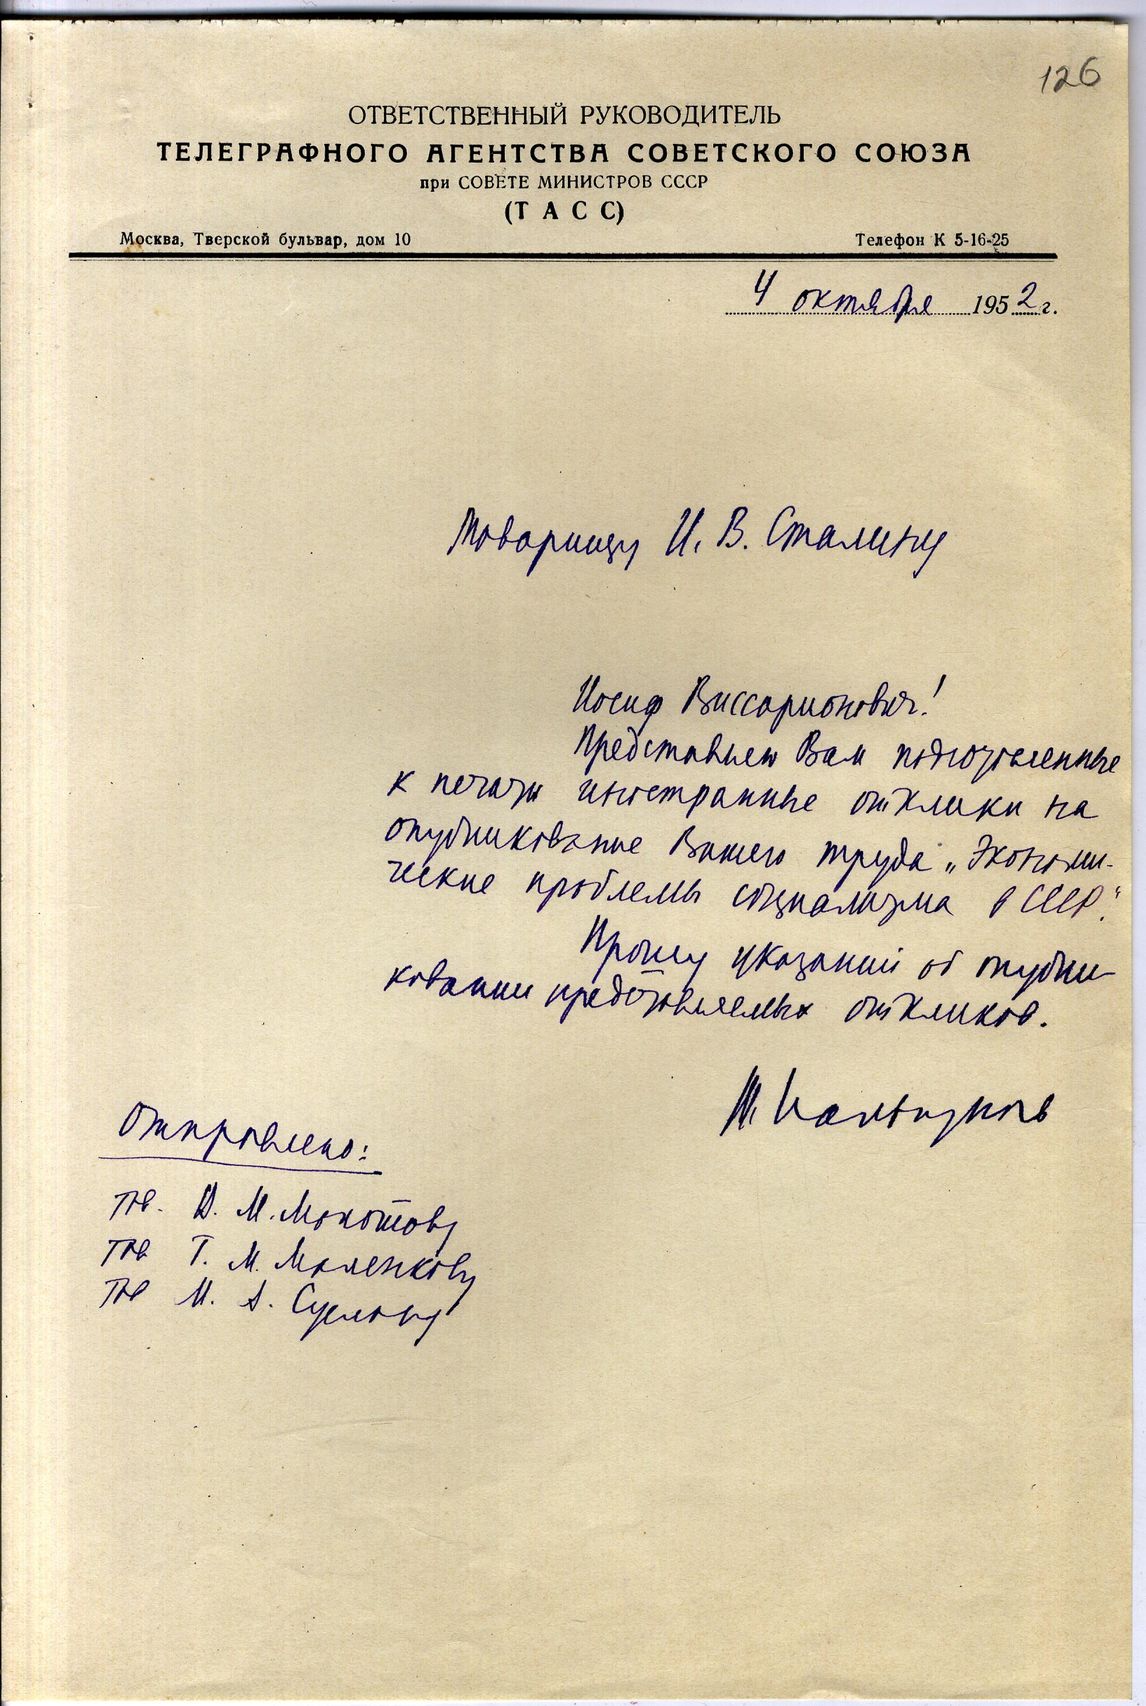 126
ОТВЕТСТВЕННЫЙ РУКОВОДИТЕЛЬ
ТЕЛЕГРАФНОГО АГЕНТСТВА СОВЕТСКОГО СОЮЗА
при СОВЕТЕ МИНИСТРОВ СССР
(ТАСС)
Москва, Тверской бульвар, дом 10 Телефон К 5-16-25
4 октября 1952 г.
Товарищу И. В. Сталину
Иосиф Виссарионович!
Представляю Вам подготовленные
к печати иностранные отклики на
опубликование Вашего труда „Экономи-
ческие проблемы социализма в СССР".
Прошу указаний об опубли-
ковании представляемых откликов.
Н. Пальгунов
Отправлено:
тов. В. М. Молотову
тов Г. М. Маленкову
тов М. А. Суслову